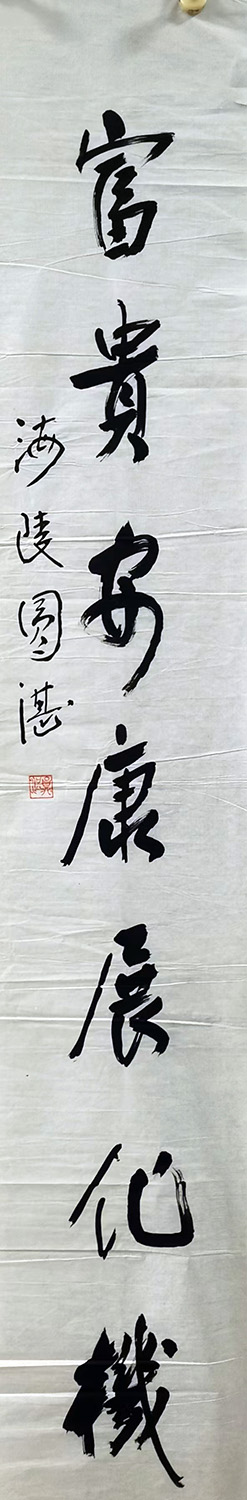 富貴安康展化機
海陵圓湛